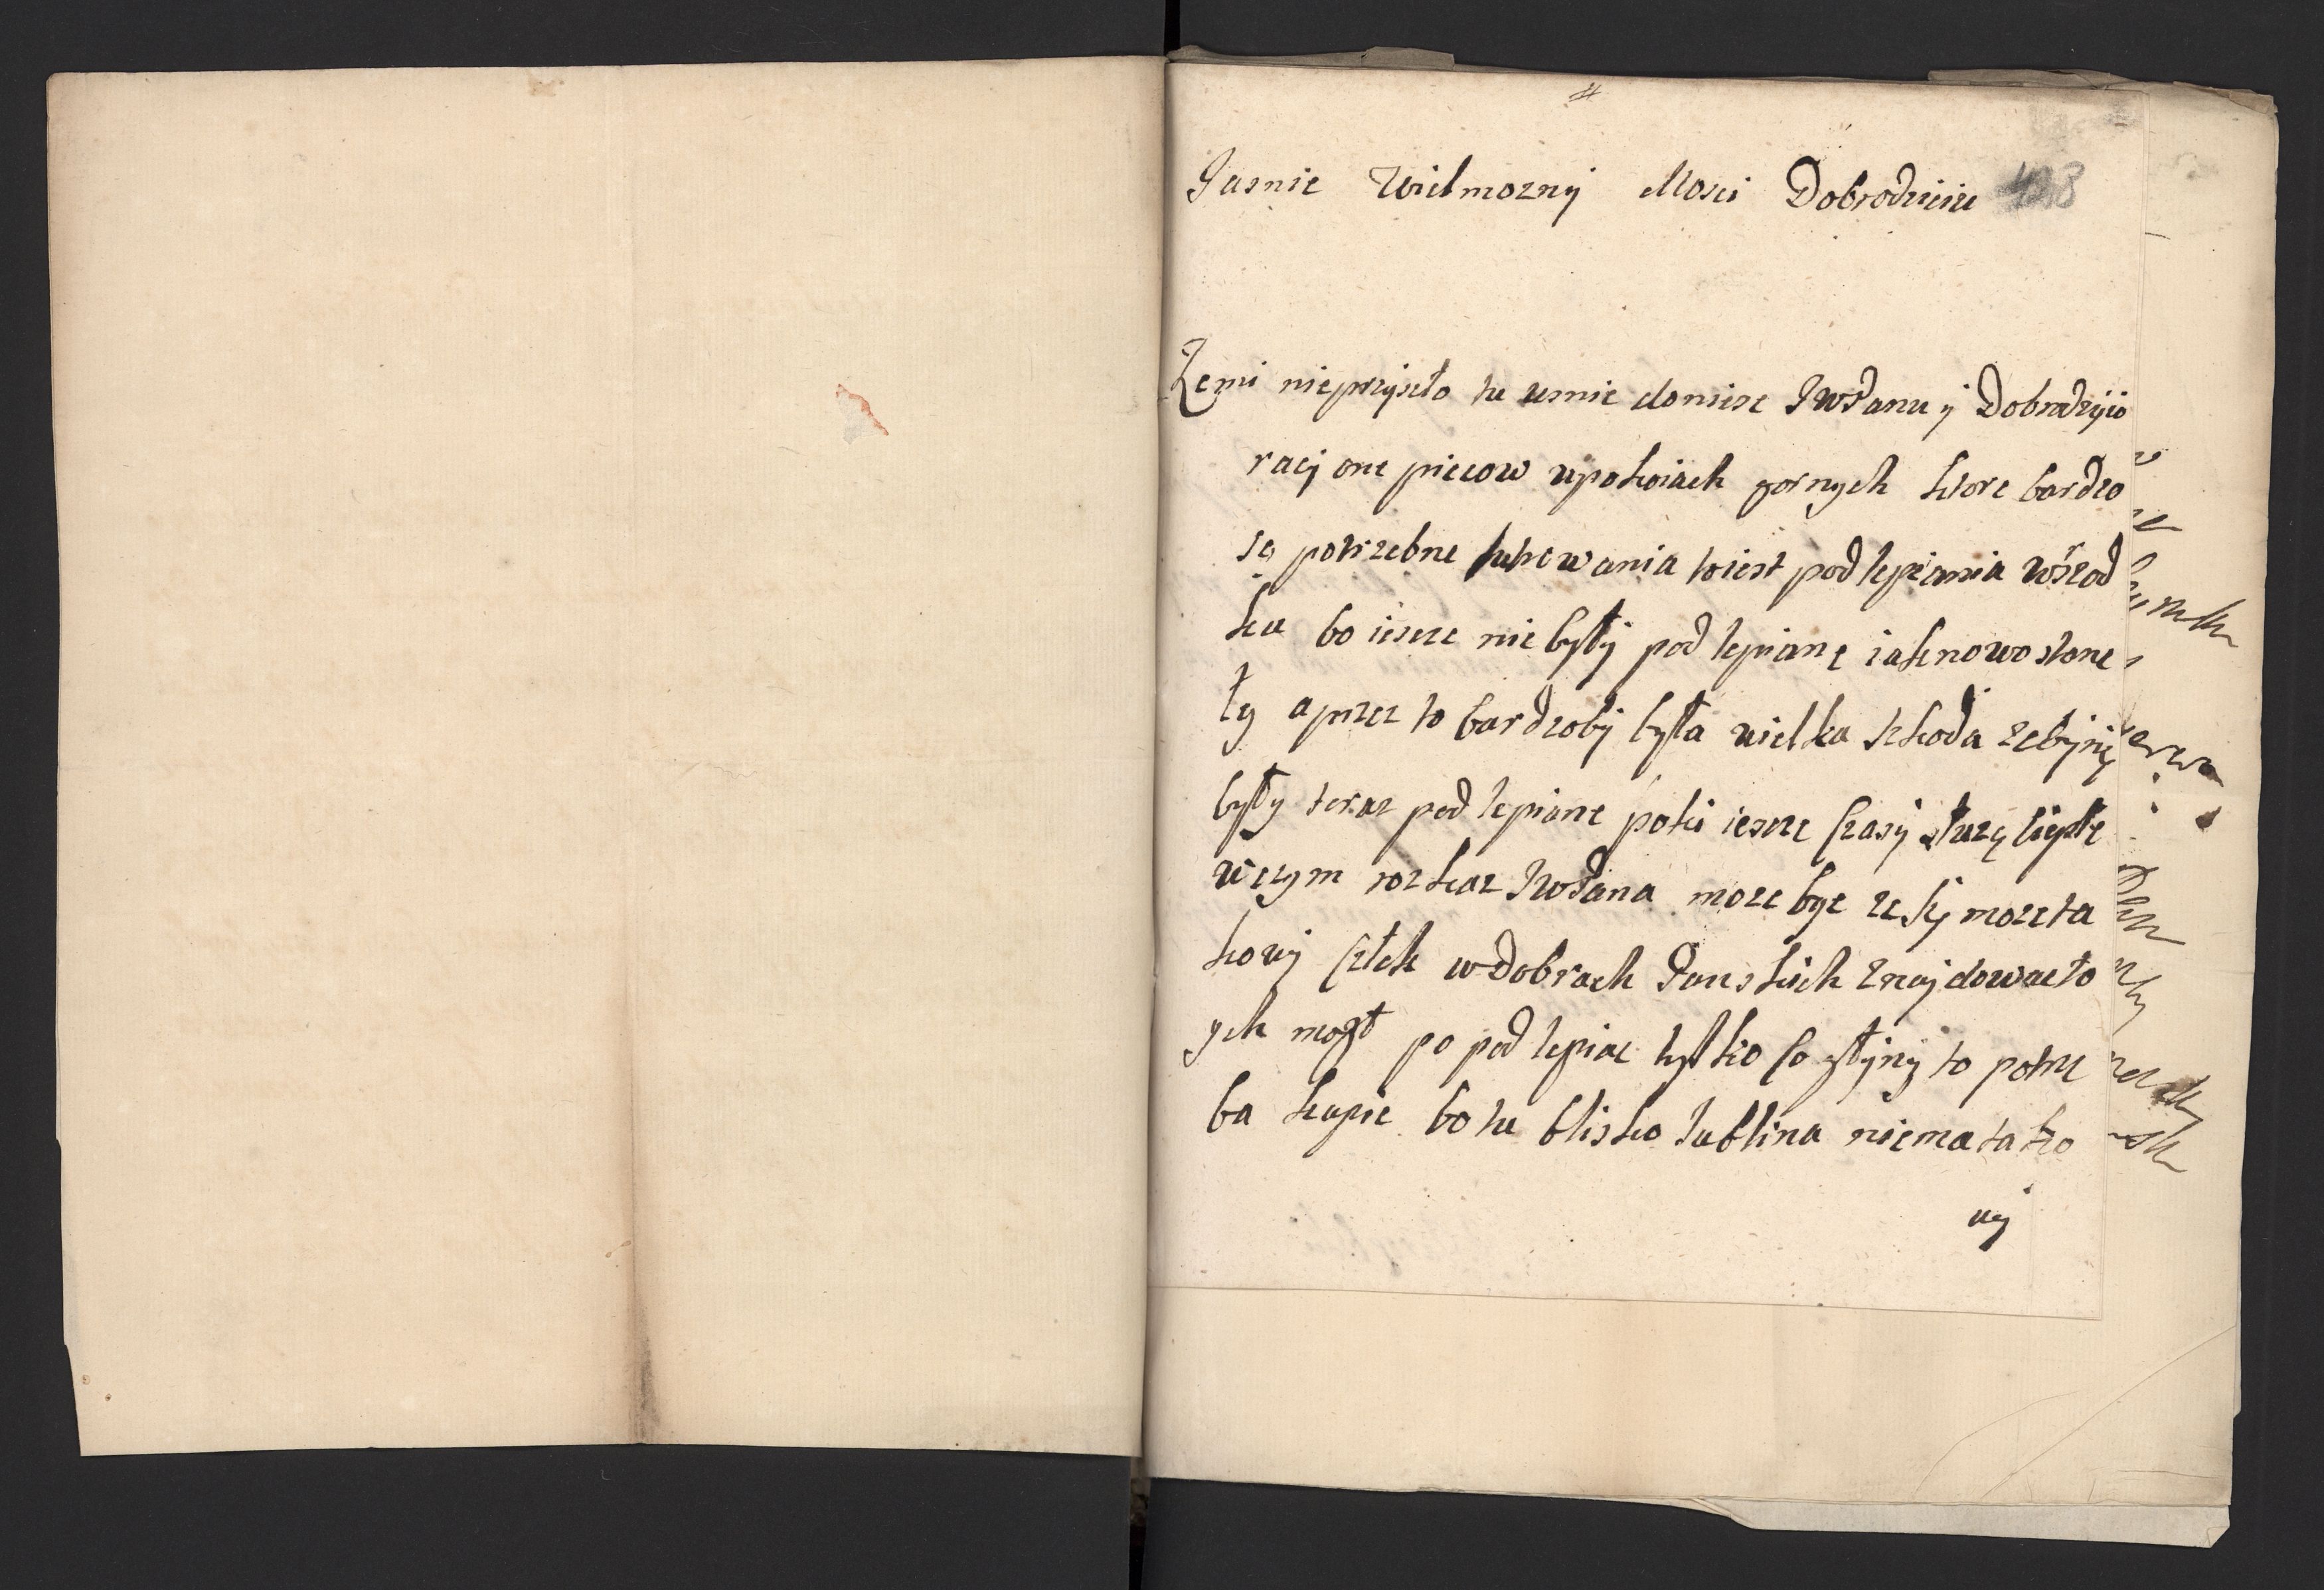 Jasnie Wielmozny Mosci Dobrodzieiu
Zemi nieprzyszło tu usnie doniesc JWPanu y Dobrodzijio
racij one piecow wpokoiach gornych ktore bardzo
są potrzebne toiest podlepiania wśrod
ku bo iescze niebyłÿ podlepianę iak nowo stanę
ły aprzez to bardzobÿ była wielka szkoda zebÿnię
były teraz podlepiane poki iescze czasÿ służę ciepłe
wczym rozkaz JWPana moze byc ze sÿ mozeta
kowÿ człek wDobrach Panskich znajdowacto
ych mogł popodlepiac tylko to potrze
ba kupic bo tu blisko lublina niema tako
wÿ